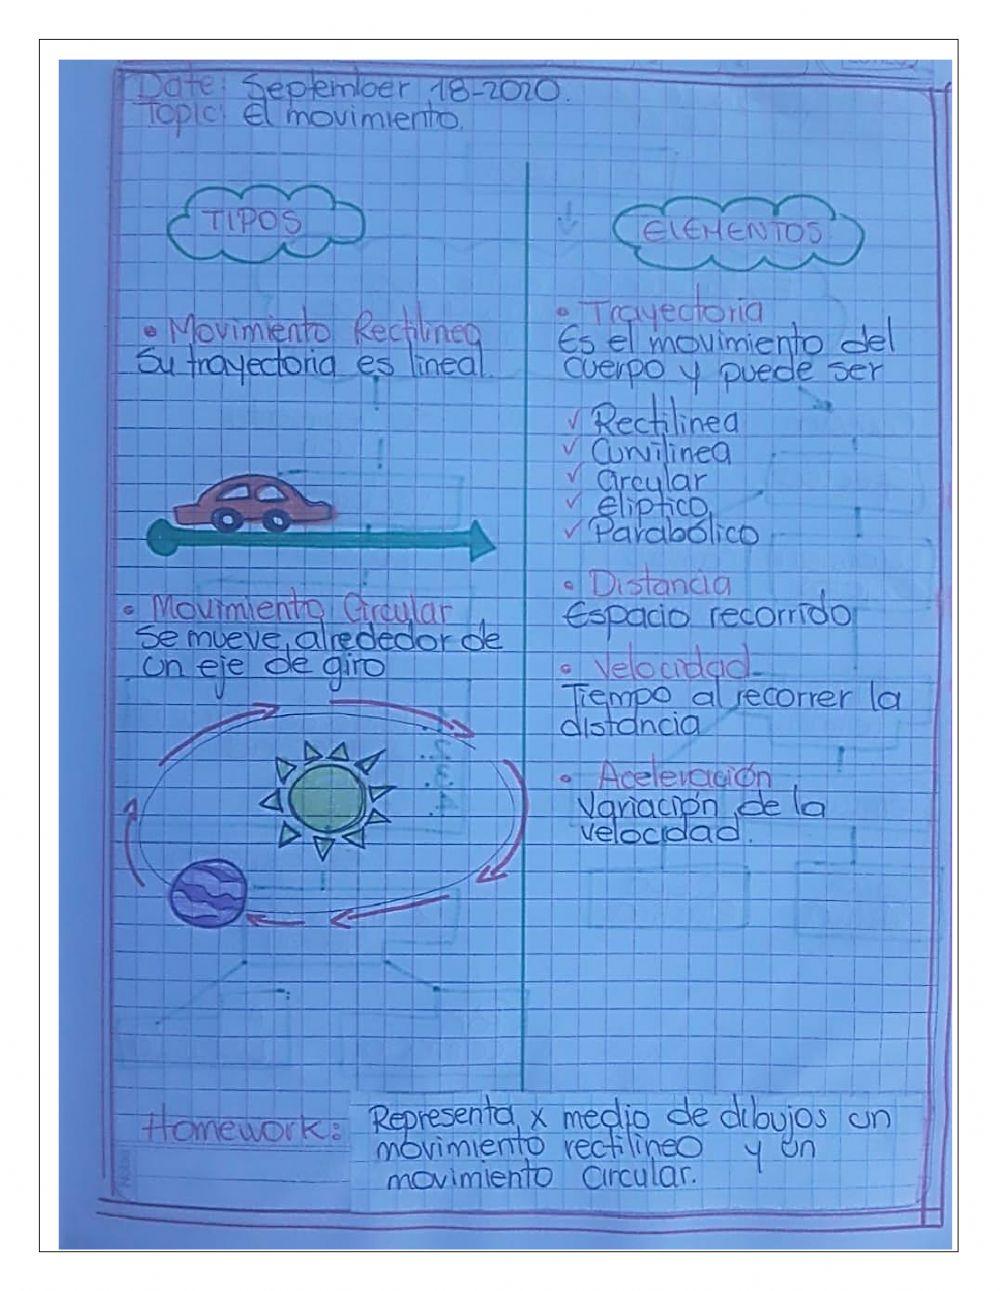 Date: September 18-2020.
Topic: El movimiento.
TIPOS
• Movimiento Rectilineo
Su trayectoria es lineal.
• Movimiento Circular
Se mueve alrededor de
un eje de giro
ELEMENTOS
• Trayectoria
Es el movimiento del
cuerpo y puede ser
✓ Rectilinea
✓ Curvilinea
✓ Circular
✓ Eliptico
✓ Parabólico
• Distancia
Espacio recorrido
• Velocidad
Tiempo al recorrer la
distancia
• Aceleración
Variación de la
velocidad.
Homework: Representa x medio de dibujos un
movimiento rectilineo y un
movimiento circular.